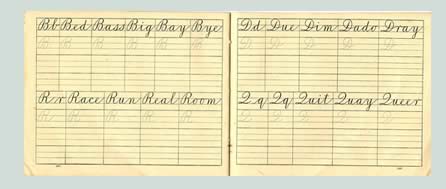 Bb Bed Bass Big Bay Bye
B B B B B
Rr Race Run Real Room
R R
Dd Due Dim Dado Dray
D D D D
Qq Qq Quit Quay Queer
Q Q